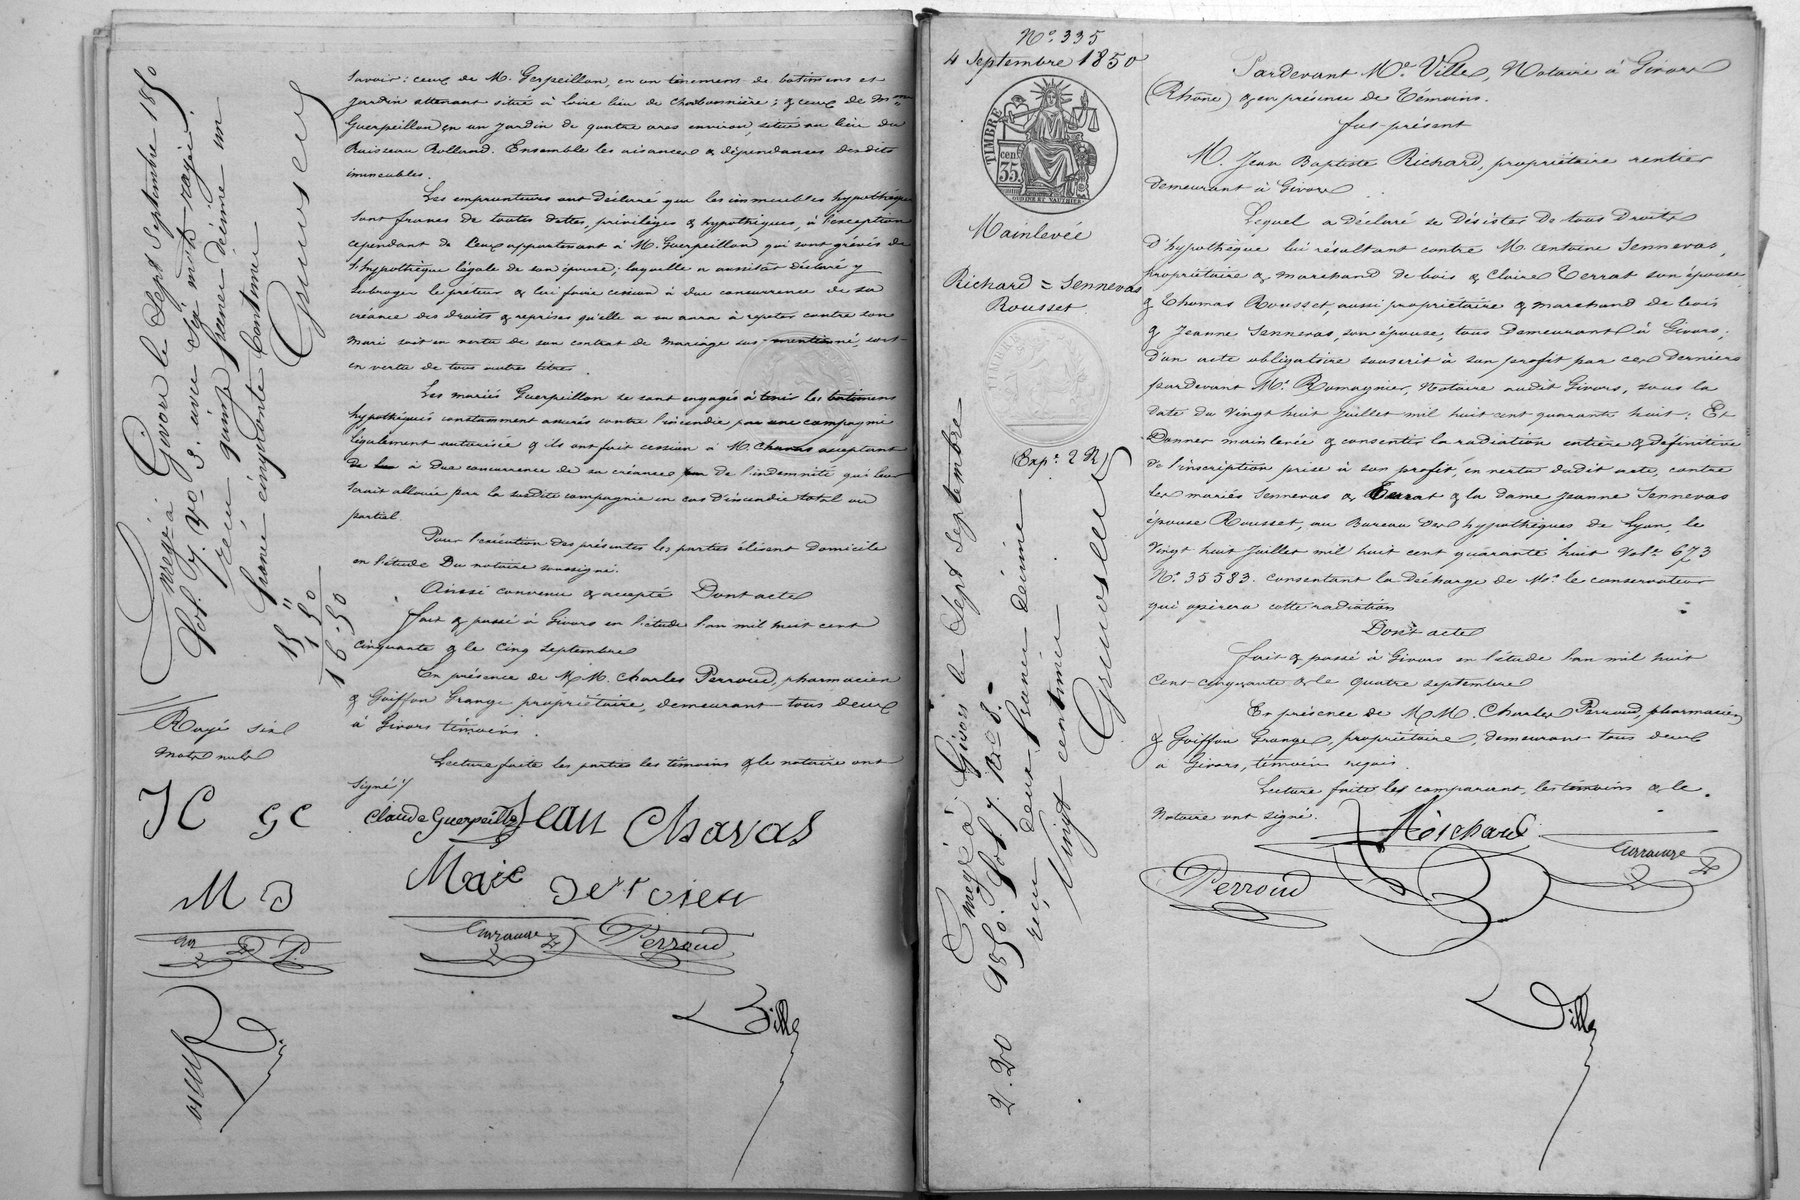 Savoir : ceux de M. Gerpeillon, en un tènement de batimens et
jardin attenant situé à Loire lieu de charbonnière ; & ceux de M.
Guerpeillon en un jardin de quatre ares environ, situé au lieu du
Ruisseau Rolland. Ensemble les aisances & dépendances desdits
immeubles.
Les emprunteurs ont déclaré que les immeubles hypothéqués
sont francs de toutes dettes, privilèges & hypothèques, à l'exception
cependant de ceux appartenant à M. Guerpeillon qui sont grévés de
l'hypothèque légale de son épouse ; laquelle a aussitôt déclaré y
subroger le prêteur & lui faire cession à due concurrence de sa
créance des droits & reprises qu'elle a ou aura à repeter contre son
mari soit en vertu de son contrat de mariage sus-mentionné, soit
en vertu de tous autres titres.
Les mariés Guerpeillon se sont engagés à tenir les batimens
hypothéqués constamment assurés contre l'incendie par une compagnie
légalement autorisée & ils ont fait cession à M. Chavas acceptant
à due concurrence de sa créance de l'indemnité qui leur
serait allouée par la susdite compagnie en cas d'incendie total ou
partiel.
Pour l'exécution des présentes les parties élisent domicile
en l'étude du notaire soussigné.
Ainsi convenu & accepté Dont acte
fait & passé à Givors en l'étude l'an mil huit cent
cinquante & le cinq septembre
En présence de M.M. Charles Perroud, pharmacien
& Goiffon Grange propriétaire, demeurant tous deux
à Givors témoins.
Lecture faite les parties les témoins & le notaire ont
Signé ./
Claude Guerpeillon Jean Chavas
Marie Dervieu
Perroud
Ville
Enregé à Givors le Sept Septembre 1850
fol. 7. Vo 3. avec
reçu quinze francs décime un
franc cinquante centimes
15 "
1 50
16.50
Rayé six
mots nuls
JC GC
M D
P.
No. 335
4 Septembre 1850
TIMBRE
cent.
35
Mainlevée
Richard = Sennevas
Rousset
Exp. 2 R
Enregé à Givors le Sept Septembre
1850. fol. 7. Ro 8.
reçu deux francs décime
vingt centimes
2.20
Pardevant Me. Ville, Notaire à Givors
(Rhône) & en présence de Témoins.
fut présent
M. Jean Baptiste Richard, propriétaire rentier
demeurant à Givors
Lequel a déclaré se désister de tous droits
d'hypothèque lui résultant contre M. Antoine Sennevas,
propriétaire & marchand de bois & Claire Terrat son épouse
& Thomas Rousset, aussi propriétaire & marchand de bois
& Jeanne Sennevas, son épouse, tous demeurant à Givors,
d'un acte obligatoire souscrit à son profit par ces derniers
pardevant Me. Romagnier, Notaire audit Givors, sous la
date du vingt huit juillet mil huit cent quarante huit ; Et
Donner mainlevée & consentir la radiation entière & définitive
de l'inscription prise à son profit, en vertu dudit acte, contre
les mariés Sennevas & Terrat & la dame Jeanne Sennevas
épouse Rousset, au Bureau des hypothèques de Lyon, le
vingt huit juillet mil huit cent quarante huit Vol. 673
No. 35583. consentant la décharge de Mr. le conservateur
qui opérera cette radiation
Dont acte
fait & passé à Givors en l'étude l'an mil huit
cent cinquante & le quatre septembre
En présence de M.M. Charles Perroud, pharmacien
& Goiffon Grange, propriétaire, demeurant tous deux
à Givors, témoins requis.
Lecture faite les comparant, les témoins & le
Notaire ont signé.
Richard
Perroud
Ville